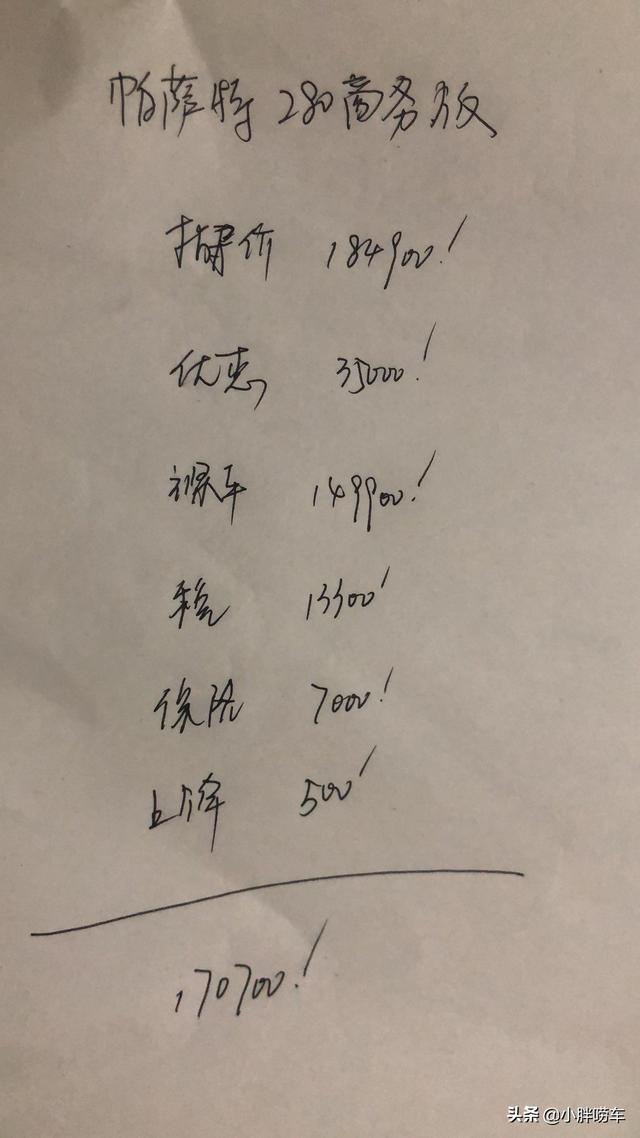 帕萨特 280商务版
指导价 184900!
优惠 35000!
裸车 149900!
税 13300!
保险 7000!
上牌 500!
170700!
头条 @小胖唠车